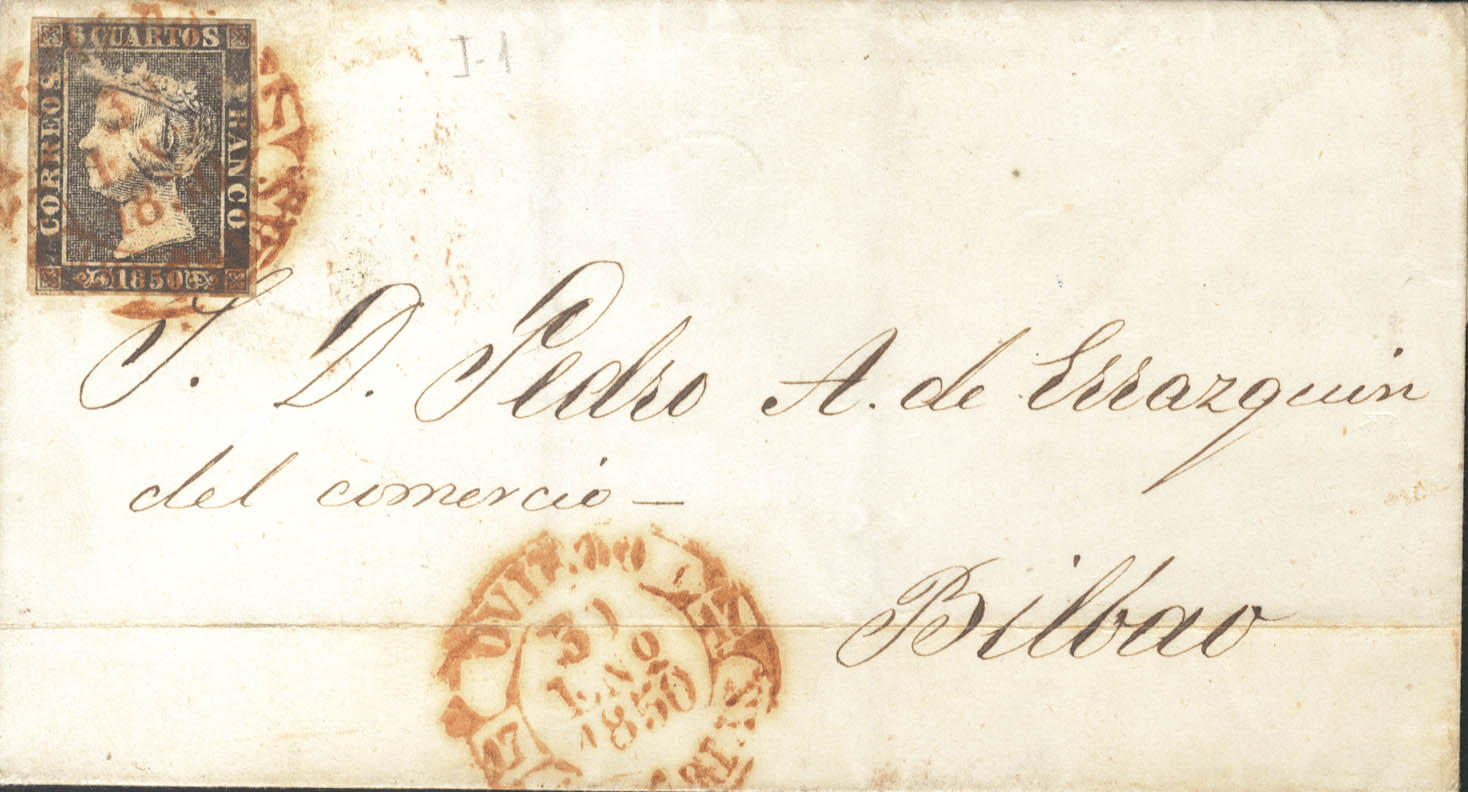 6 CUARTOS
CORREOS
FRANCO
1850
I-1
S. D. Pedro A. de Errazquin
del comercio —
Bilbao
OVIEDO
ENO
1850